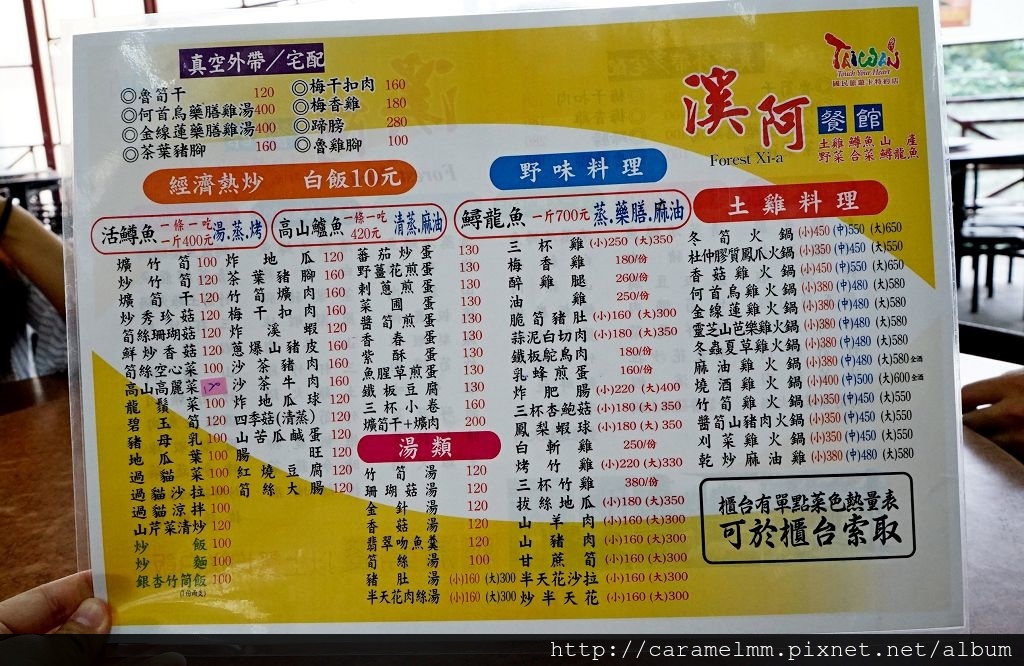 真空外帶／宅配
◎魯筍干 120
◎何首烏藥膳雞湯400
◎金線蓮藥膳雞湯400
◎茶葉豬腳 160
◎梅干扣肉 160
◎梅香雞 180
◎蹄膀 280
◎魯雞腳 100
TAIWAN
Touch Your Heart
國民旅遊卡特約店
溪阿 餐館
Forest Xi-a
土雞 鱒魚 山產
野菜 合菜 鱘龍魚
經濟熱炒 白飯10元
活鱒魚 一條一吃 一斤400元 湯.蒸.烤
高山鱸魚 一條一吃 420元 清蒸.麻油
爌竹筍 100
炒竹筍 120
爌筍干 120
炒秀珍菇 120
筍絲珊瑚菇 120
鮮炒香菇 120
筍絲空心菜 100
高山高麗菜
龍鬚菜 100
碧玉筍 120
豬母乳 100
地瓜葉 100
過貓菜 100
過貓沙拉 100
過貓涼拌 100
山芹菜清炒 120
炒飯 100
炒麵 100
銀杏竹筒飯 100
炸地瓜 120
茶葉豬腳 160
竹筍爌肉 160
梅干扣肉 160
炸溪蝦 120
蔥爆山豬皮 160
沙茶豬肉 160
沙茶牛肉 160
炸地瓜球 120
四季菇(清蒸) 120
山苦瓜鹹蛋 120
腸旺 120
紅燒豆腐 120
筍絲大腸 120
番茄炒蛋 130
野薑花煎蛋 130
剌蔥煎蛋 130
菜圃蛋 130
醬筍煎蛋 130
香春蛋 130
紫酥蛋 130
魚腥草煎蛋 130
鐵板豆腐 130
三杯小卷 160
爌筍干+爌肉 200
湯類
竹筍湯 120
珊瑚菇湯 120
金針湯 120
香菇湯 120
翡翠吻魚羹 120
筍絲湯 100
豬肚湯 (小)160 (大)300
半天花肉絲湯 (小)160 (大)300
野味料理
鱘龍魚 一斤700元 蒸.藥膳.麻油
三杯雞 (小)250 (大)350
梅香雞 180/份
醉雞腿 260/份
油雞 250/份
脆筍豬肚 (小)160 (大)300
蒜泥白切肉 (小)180 (大)350
鐵板鴕鳥肉 180/份
乳蜂煎蛋 160/份
炸肥腸 (小)220 (大)400
三杯杏鮑菇 (小)180 (大)350
鳳梨蝦球 (小)180 (大)350
白斬雞 250/份
烤竹雞 (小)220 (大)330
三杯竹雞 380/份
拔絲地瓜 (小)180 (大)350
山羊肉 (小)160 (大)300
山豬肉 (小)160 (大)300
甘蔗筍 (小)160 (大)300
半天花沙拉 (小)160 (大)300
炒半天花 (小)160 (大)300
土雞料理
冬筍火鍋 (小)450 (中)550 (大)650
杜仲膠質鳳爪火鍋 (小)350 (中)450 (大)550
香菇雞火鍋 (小)450 (中)550 (大)650
何首烏雞火鍋 (小)380 (中)480 (大)580
金線蓮雞火鍋 (小)380 (中)480 (大)580
靈芝山芭樂雞火鍋 (小)380 (中)480 (大)580
冬蟲夏草雞火鍋 (小)380 (中)480 (大)580
麻油雞火鍋 (小)380 (中)480 (大)580 全酒
燒酒雞火鍋 (小)400 (中)500 (大)600 全酒
竹筍雞火鍋 (小)350 (中)450 (大)550
醬筍山豬肉火鍋 (小)350 (中)450 (大)550
刈菜雞火鍋 (小)350 (中)450 (大)550
乾炒麻油雞 (小)380 (中)480 (大)580
櫃台有單點菜色熱量表
可於櫃台索取
http://caramelmm.pixnet.net/album